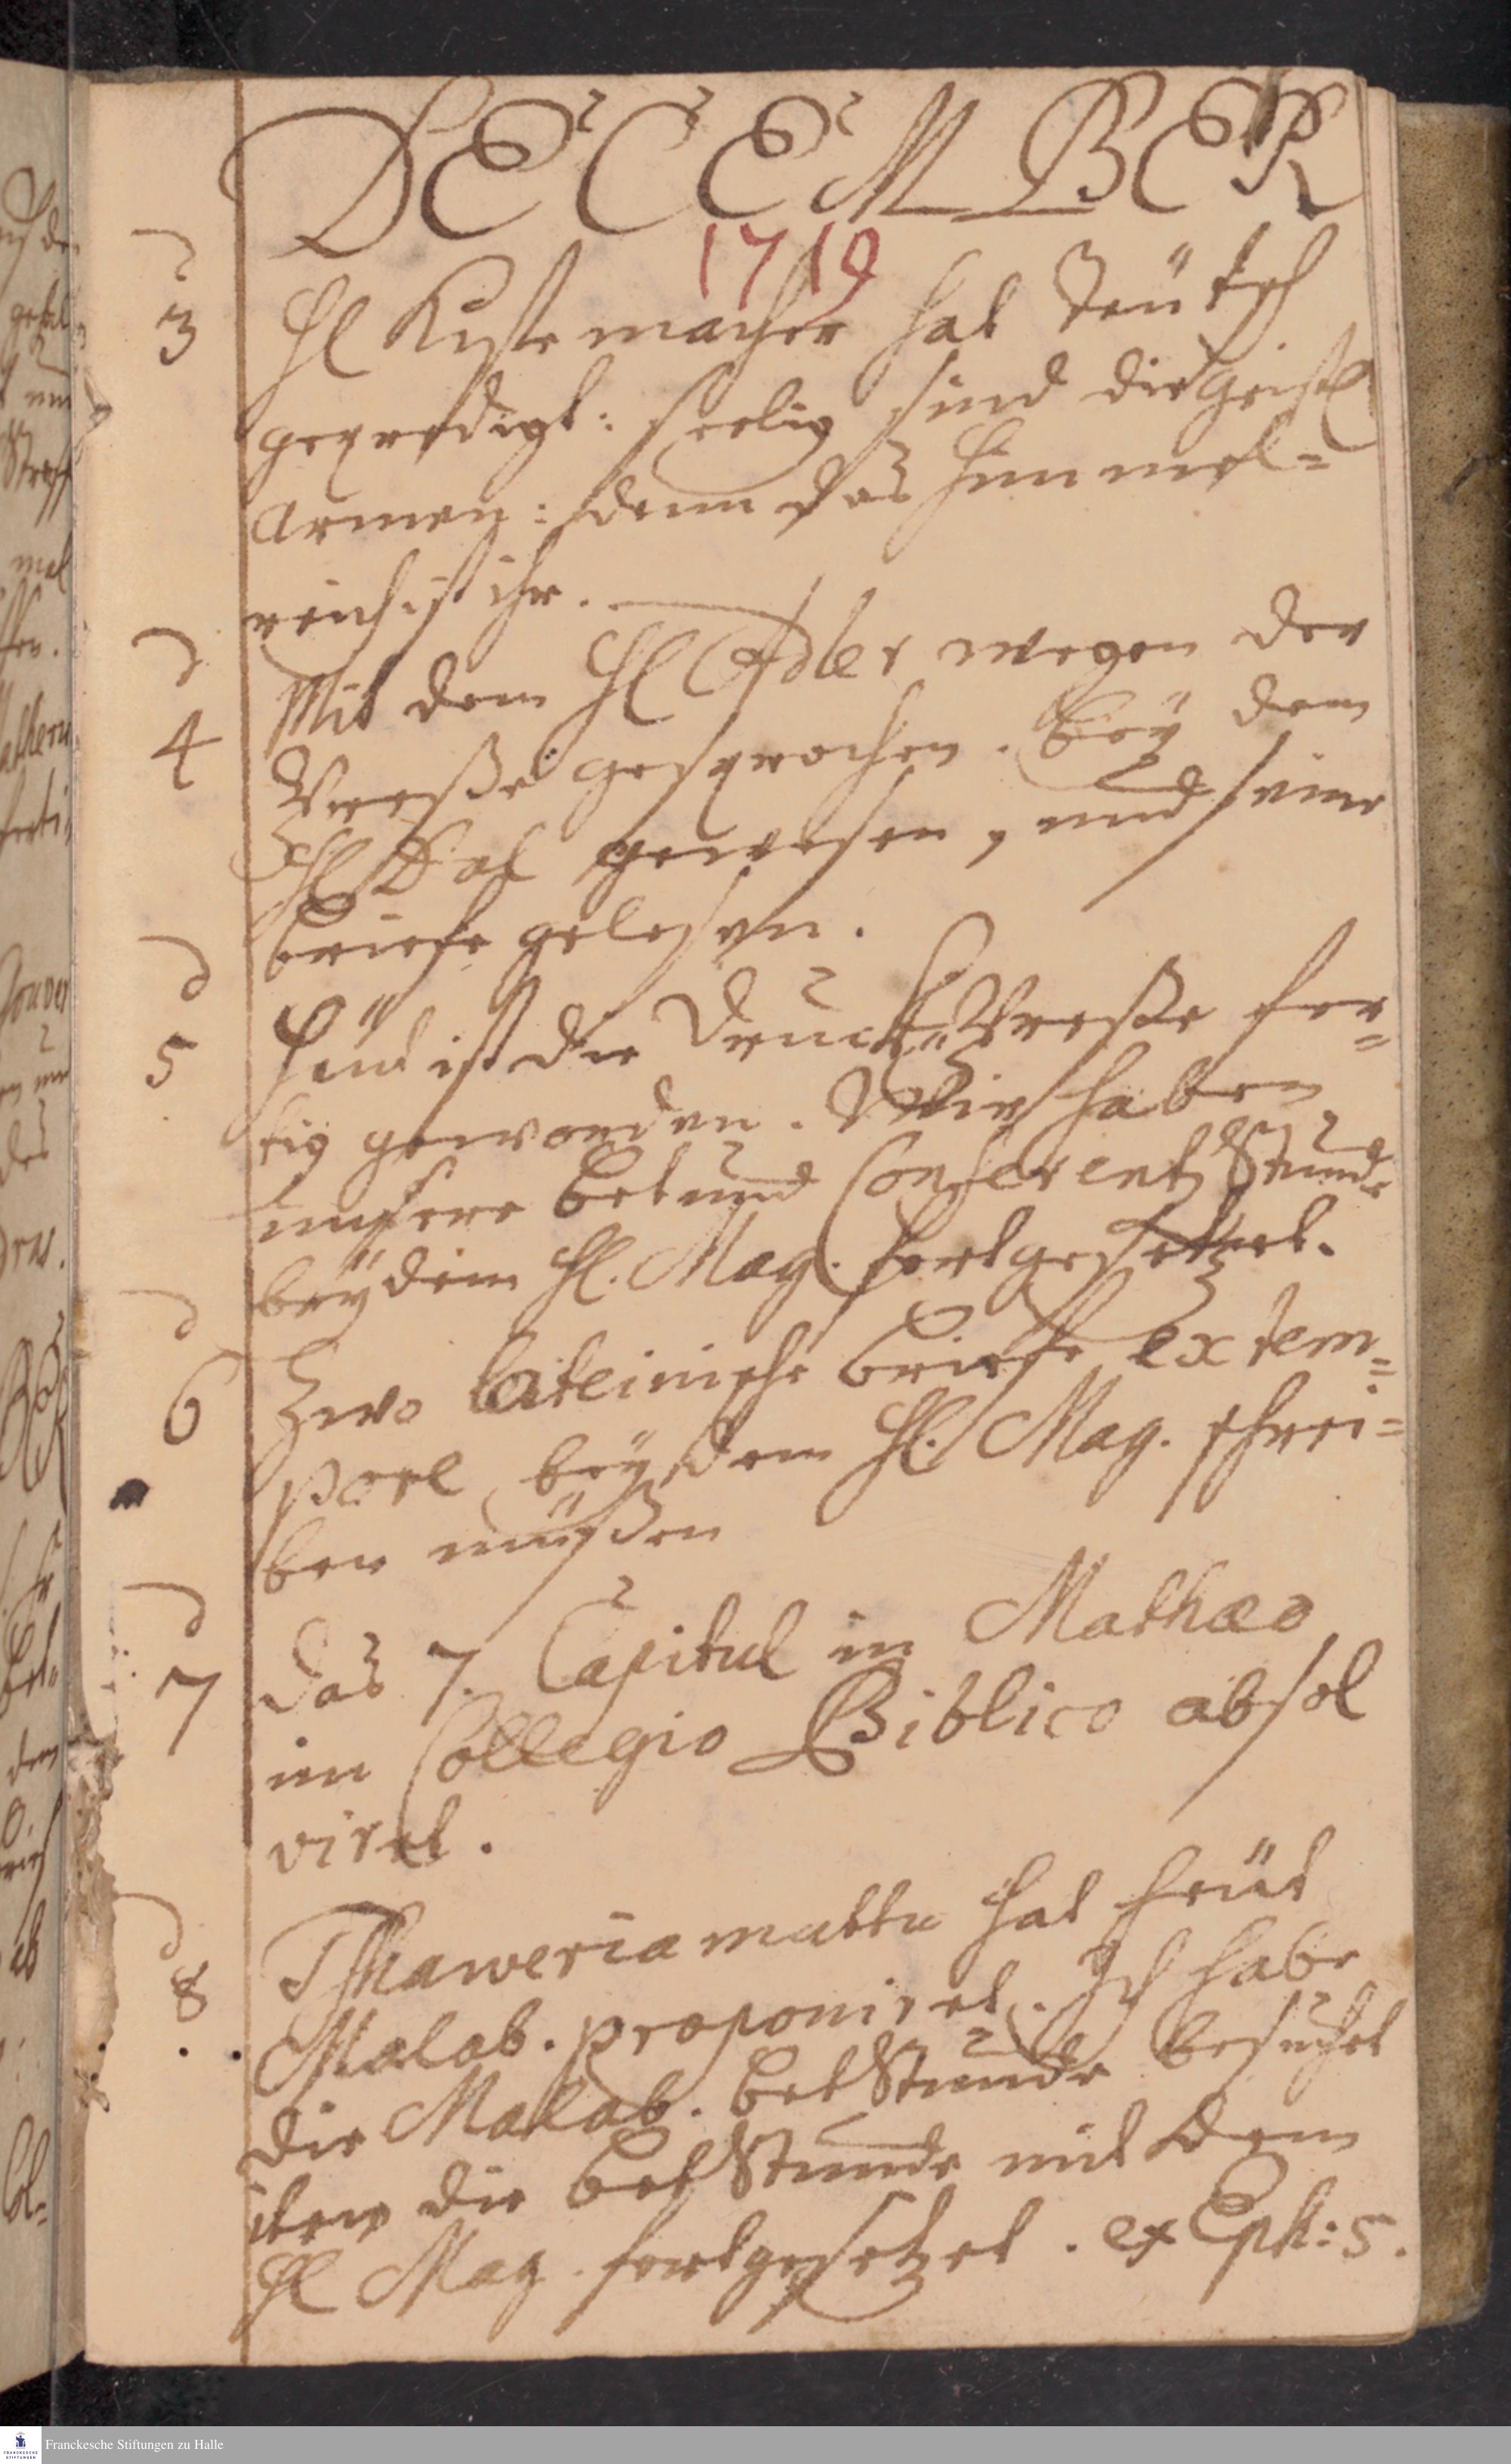 DECEMBER
1719
3 Hl Kistemacher hat Teütsch
gepredigt: seelig sind die geistl
armen: denn das Himmel=
reich ist ihr.
4 Mit dem Hl Adler wegen der
Presse gesprochen. Bey dem
Hl Dal gewesen, und seine
briefe gelesen.
5 Heüt ist die Druck-Presse fer=
tig geworden. Wir haben
unsere bet und Conferentz Stunde
bey dem Hl. Mag. fortgesetzet.
6 Zwo lateinische briefe extem=
pore bey dem Hl. Mag. schrei=
ben müßen
7 das 7. Capitul in Mathæo
im Collegio Biblico absol
viret.
8 Thaweriamuttu hat heüt
Malab. proponiret. Ich habe
die Malab. betStunde besuchet
item die betStunde mit dem
Hl Mag. fortgesetzet. ex Eph: 5.
Franckesche Stiftungen zu Halle